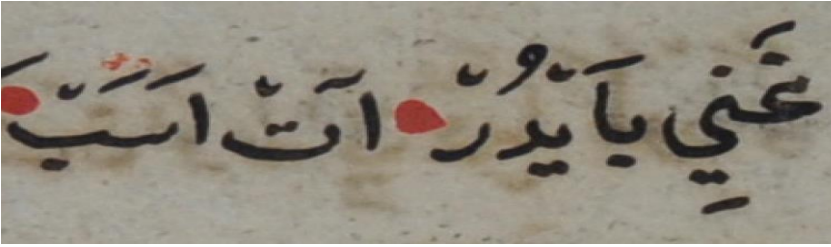 غَنِي بَايْدُرْ آتْ اَسَبْ